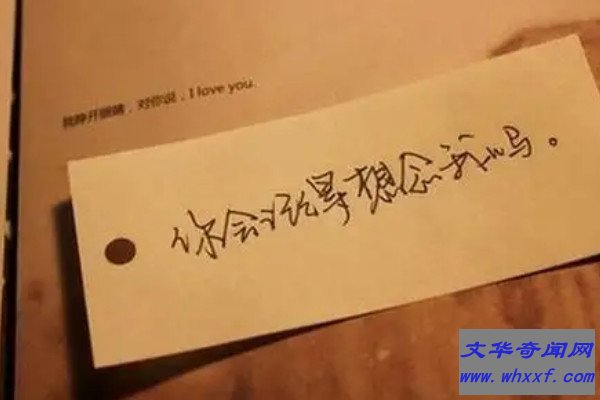 我睁开眼睛，对你说，I love you.
你会记得想念我吗。
文华奇闻网
www.whxxf.com